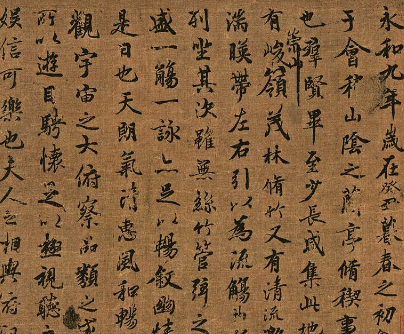 永和九年歲在癸丑暮春之初
于會稽山陰之蘭亭脩稧事
也群賢畢至少長咸集此地
有崇山峻嶺茂林脩竹又有清流
湍暎帶左右引以為流觴
列坐其次雖無絲竹管弦之
盛一觴一詠亦足以暢敘幽情
是日也天朗氣清惠風和暢
觀宇宙之大俯察品類之盛
所以遊目騁懷足以極視聽之
娛信可樂也夫人之相與俯